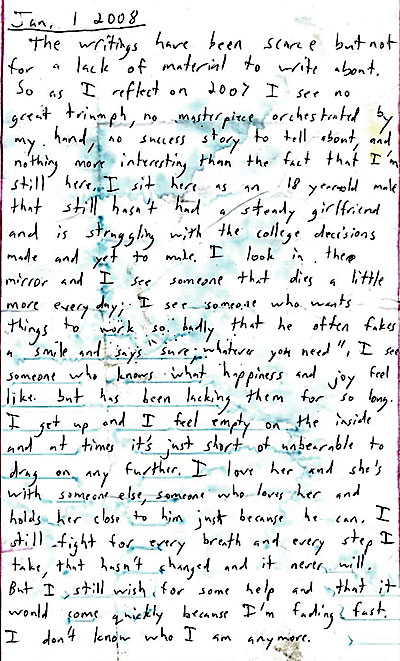 Jan. 1 2008
The writings have been scarce but not
for a lack of material to write about.
So as I reflect on 2007 I see no
great triumph, no masterpiece orchestrated by
my hand, no success story to tell about, and
nothing more interesting than the fact that I'm
still here. I sit here as an 18 year old male
that still hasn't had a steady girlfriend
and is struggling with the college decisions
made and yet to make. I look in the
mirror and I see someone that dies a little
more every day; I see someone who wants
things to work so badly that he often fakes
a smile and says "sure, whatever you need", I see
someone who knows what happiness and joy feel
like but has been lacking them for so long.
I get up and I feel empty on the inside
and at times it's just short of unbearable to
drag on any further. I love her and she's
with someone else, someone who loves her and
holds her close to him just because he can. I
still fight for every breath and every step I
take, that hasn't changed and it never will.
But I still wish for some help and that it
would come quickly because I'm fading fast.
I don't know who I am anymore.